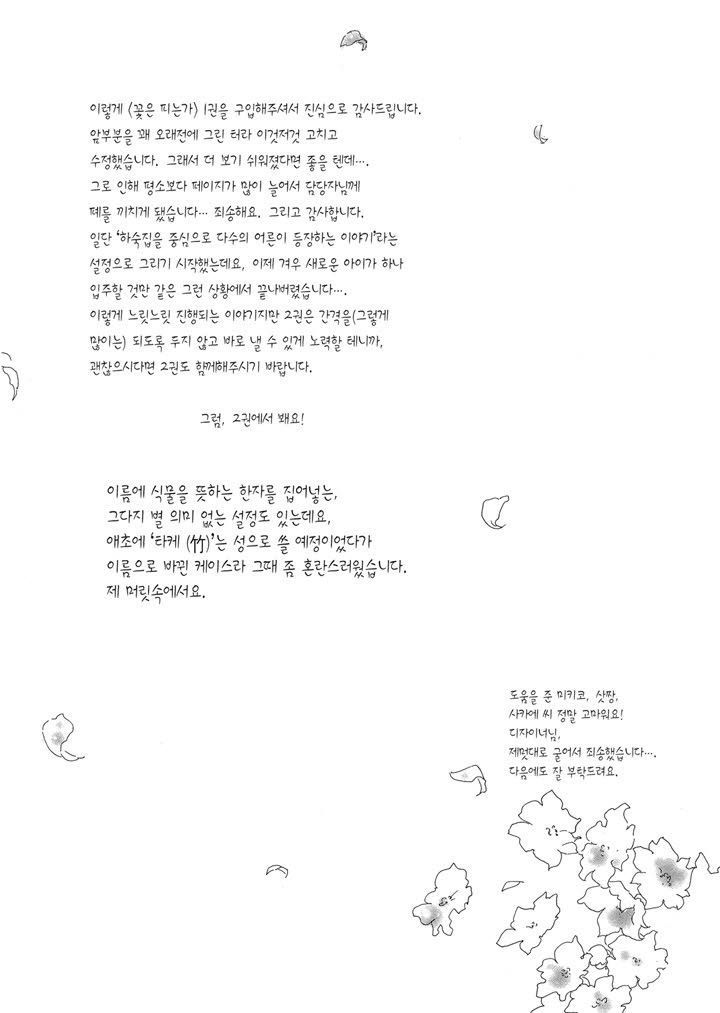 이렇게 〈꽃은 피는가〉 1권을 구입해주셔서 진심으로 감사드립니다.
앞부분을 꽤 오래전에 그린 터라 이것저것 고치고
수정했습니다. 그래서 더 보기 쉬워졌다면 좋을 텐데….
그로 인해 평소보다 페이지가 많이 늘어서 담당자님께
폐를 끼치게 됐습니다… 죄송해요. 그리고 감사합니다.
일단 ‘하숙집을 중심으로 다수의 어른이 등장하는 이야기’라는
설정으로 그리기 시작했는데요, 이제 겨우 새로운 아이가 하나
입주할 것만 같은 그런 상황에서 끝나버렸습니다….
이렇게 느릿느릿 진행되는 이야기지만 2권은 간격을(그렇게
많이는) 되도록 두지 않고 바로 낼 수 있게 노력할 테니까,
괜찮으시다면 2권도 함께해주시기 바랍니다.
그럼, 2권에서 봬요!
이름에 식물을 뜻하는 한자를 집어넣는,
그다지 별 의미 없는 설정도 있는데요,
애초에 ‘타케 (竹)’는 성으로 쓸 예정이었다가
이름으로 바뀐 케이스라 그때 좀 혼란스러웠습니다.
제 머릿속에서요.
도움을 준 미키코, 삿짱,
사카에 씨 정말 고마워요!
디자이너님,
제멋대로 굴어서 죄송했습니다….
다음에도 잘 부탁드려요.